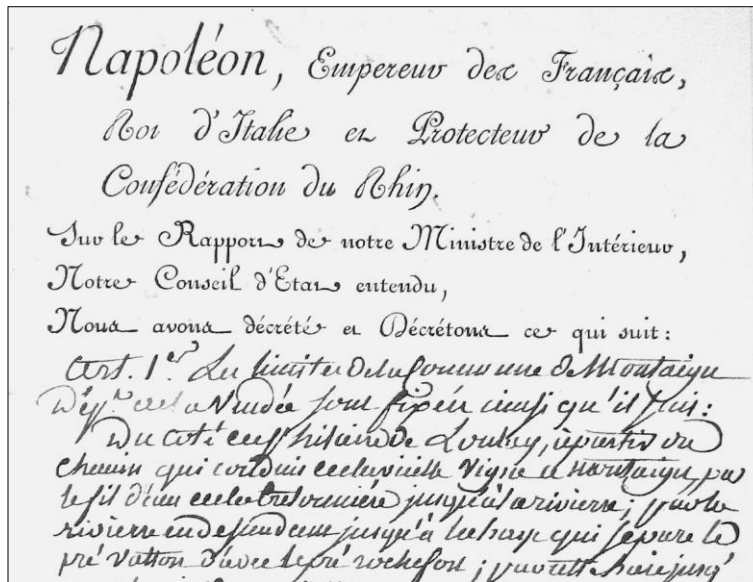 Napoléon, Empereur des Français,
Roi d'Italie et Protecteur de la
Confédération du Rhin.
Sur le Rapport de notre Ministre de l'Intérieur,
Notre Conseil d'Etat entendu,
Nous avons décrété et Décrétons ce qui suit :
Art. 1er Les limites de la Commune de Montaigu
Dépt. de la Vendée sont fixées ainsi qu'il suit :
Du coté de St. hilaire de Loulay, à partir du
chemin qui conduit de la vieille Vigne à Montaigu, par
le fil d'eau de la tresonnière jusqu'à la riviere ; par la
riviere en descendant jusqu'à la haye qui separe le
pré Vatton d'avec le pré rochefort ; par cette haie jusqu'